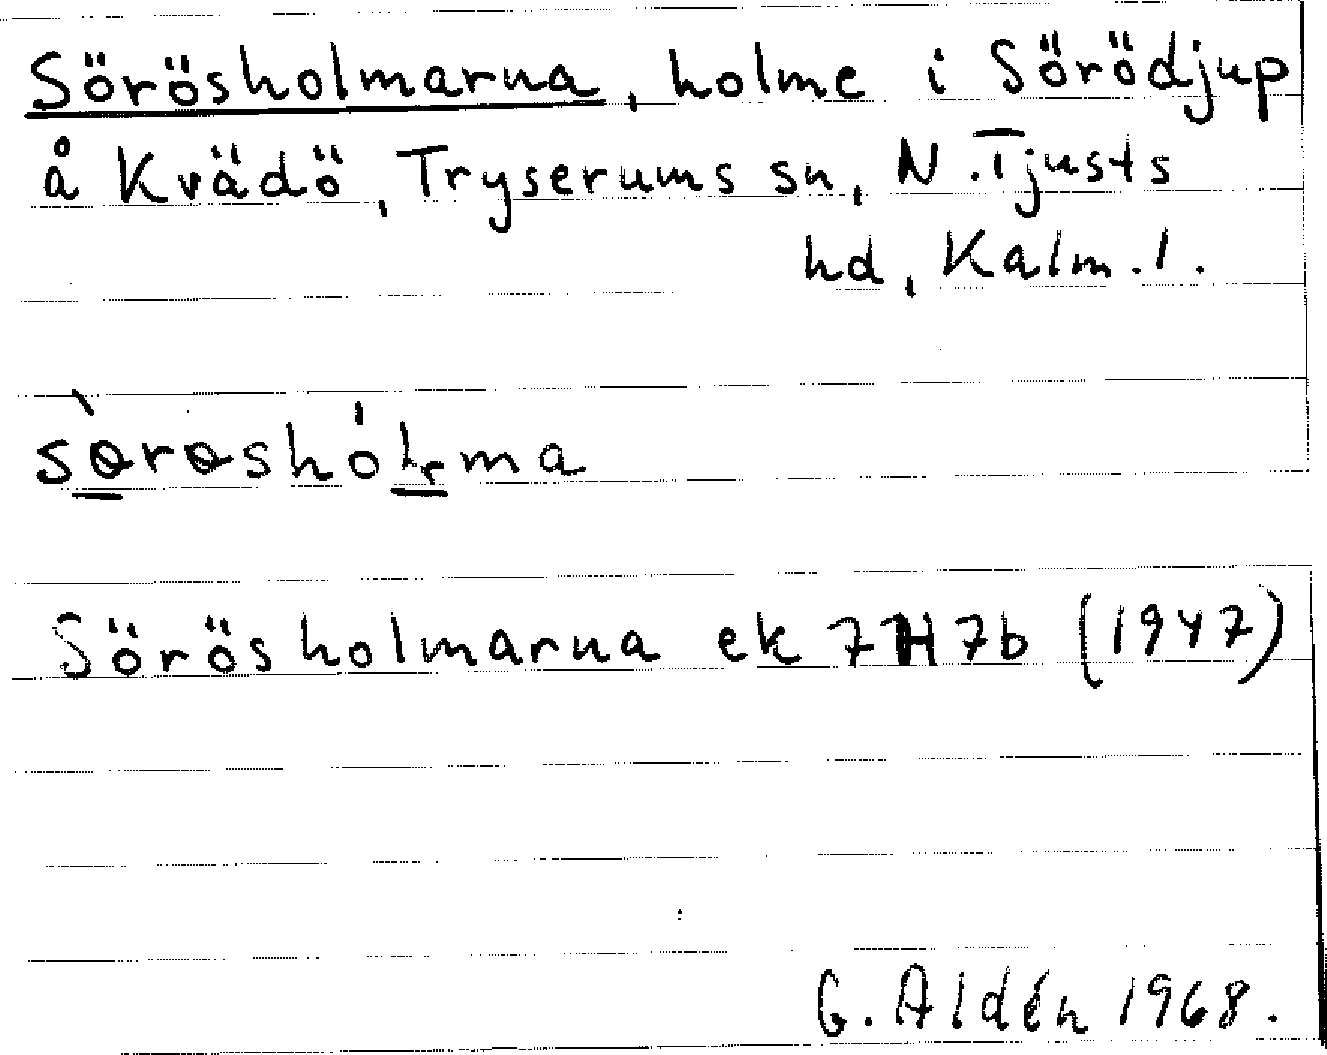 Sörösholmarna, holme i Sörödjup
å Kvädö, Tryserums sn, N. Tjusts
hd, Kalm. l.
Sörösholmarna ek 7H7b (1947)
G. Aldén 1968.